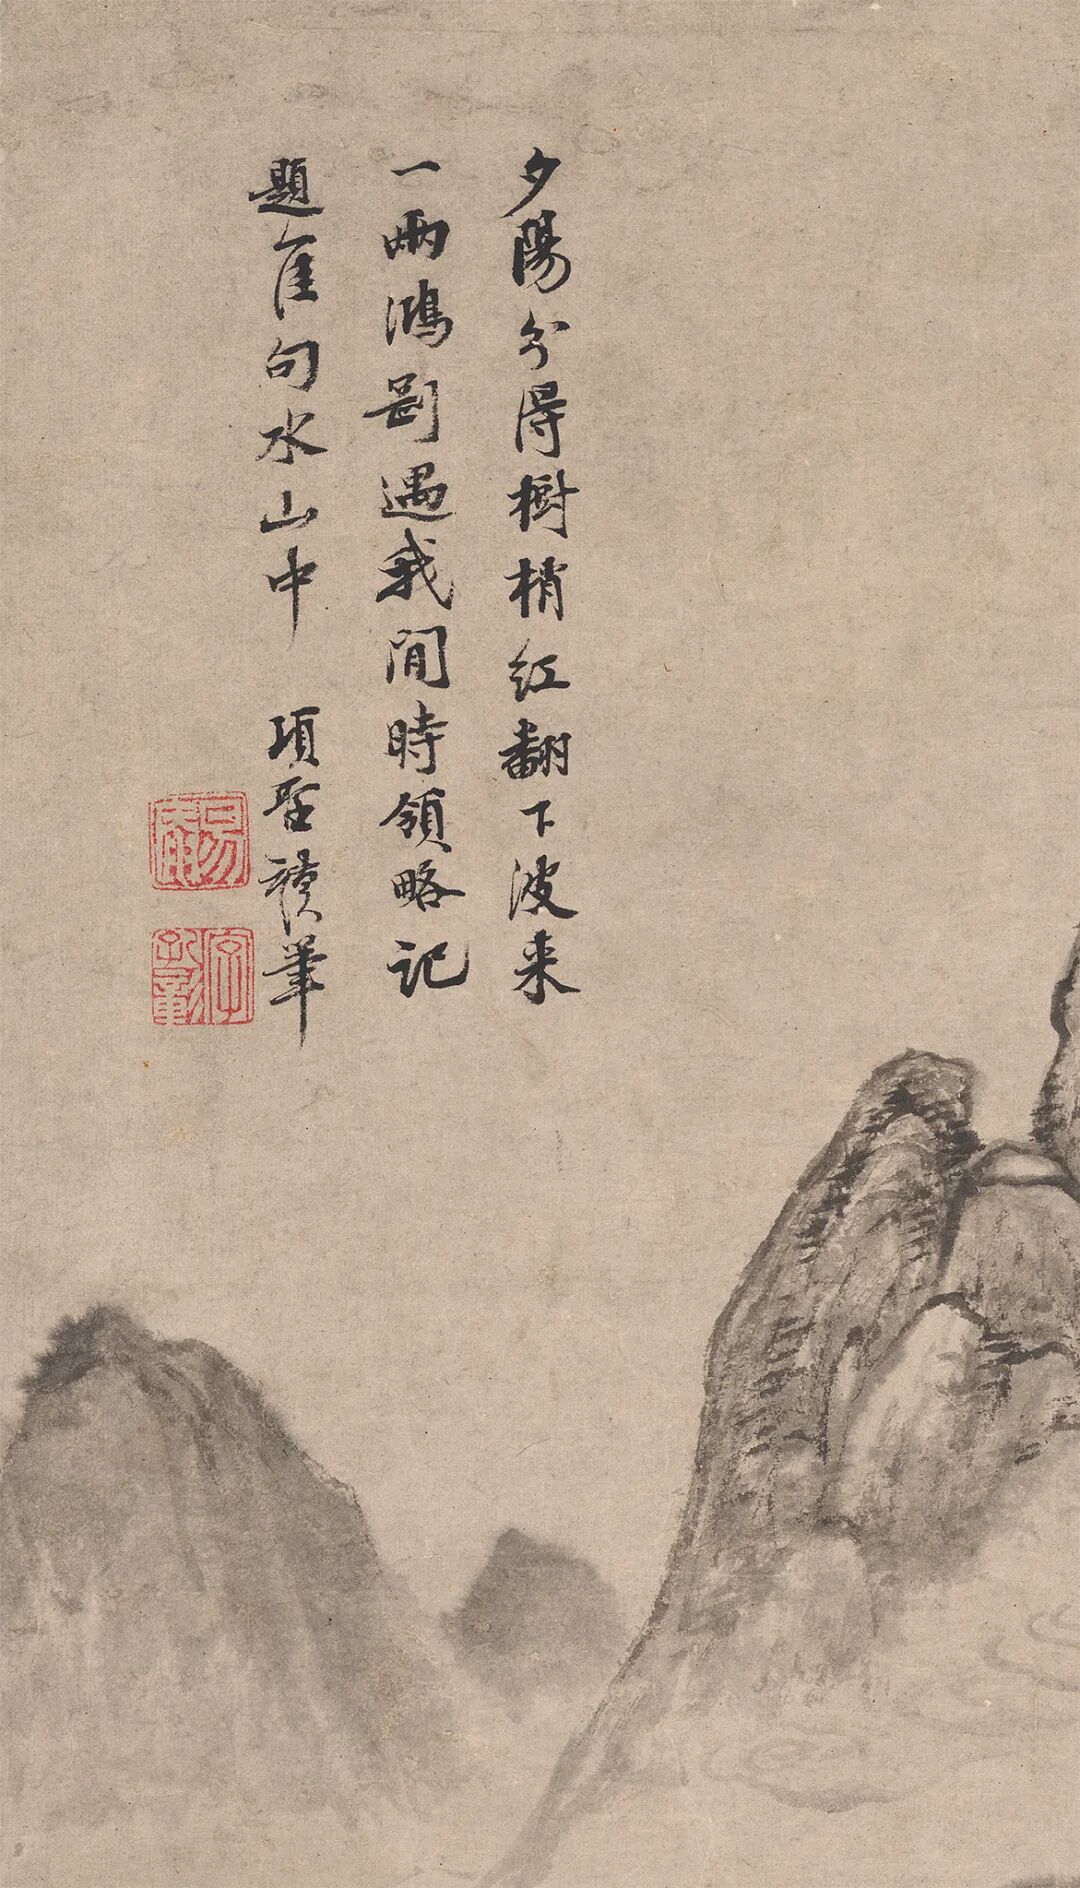 夕陽分得樹梢紅翻下波来
一兩鴻罰遇我閒時領略記
題隹句水山中 項聖謨筆